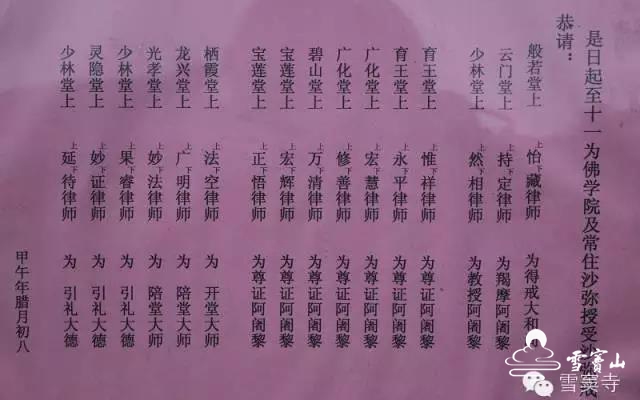 是日起至十一为佛学院及常住沙弥授受沙弥戒
恭请：
般若堂上 上怡下藏律师 为得戒大和尚
云门堂上 上持下定律师 为羯摩阿阇黎
少林堂上 上然下相律师 为教授阿阇黎
育王堂上 上惟下祥律师 为尊证阿阇黎
育王堂上 上永下平律师 为尊证阿阇黎
广化堂上 上宏下慧律师 为尊证阿阇黎
广化堂上 上修下善律师 为尊证阿阇黎
碧山堂上 上万下清律师 为尊证阿阇黎
宝莲堂上 上宏下辉律师 为尊证阿阇黎
宝莲堂上 上正下悟律师 为尊证阿阇黎
栖霞堂上 上法下空律师 为 开堂大师
龙兴堂上 上广下明律师 为 陪堂大师
光孝堂上 上妙下法律师 为 陪堂大师
少林堂上 上果下睿律师 为 引礼大德
灵隐堂上 上妙下证律师 为 引礼大德
少林堂上 上延下待律师 为 引礼大德
甲午年腊月初八
雪竇山
雪窦寺